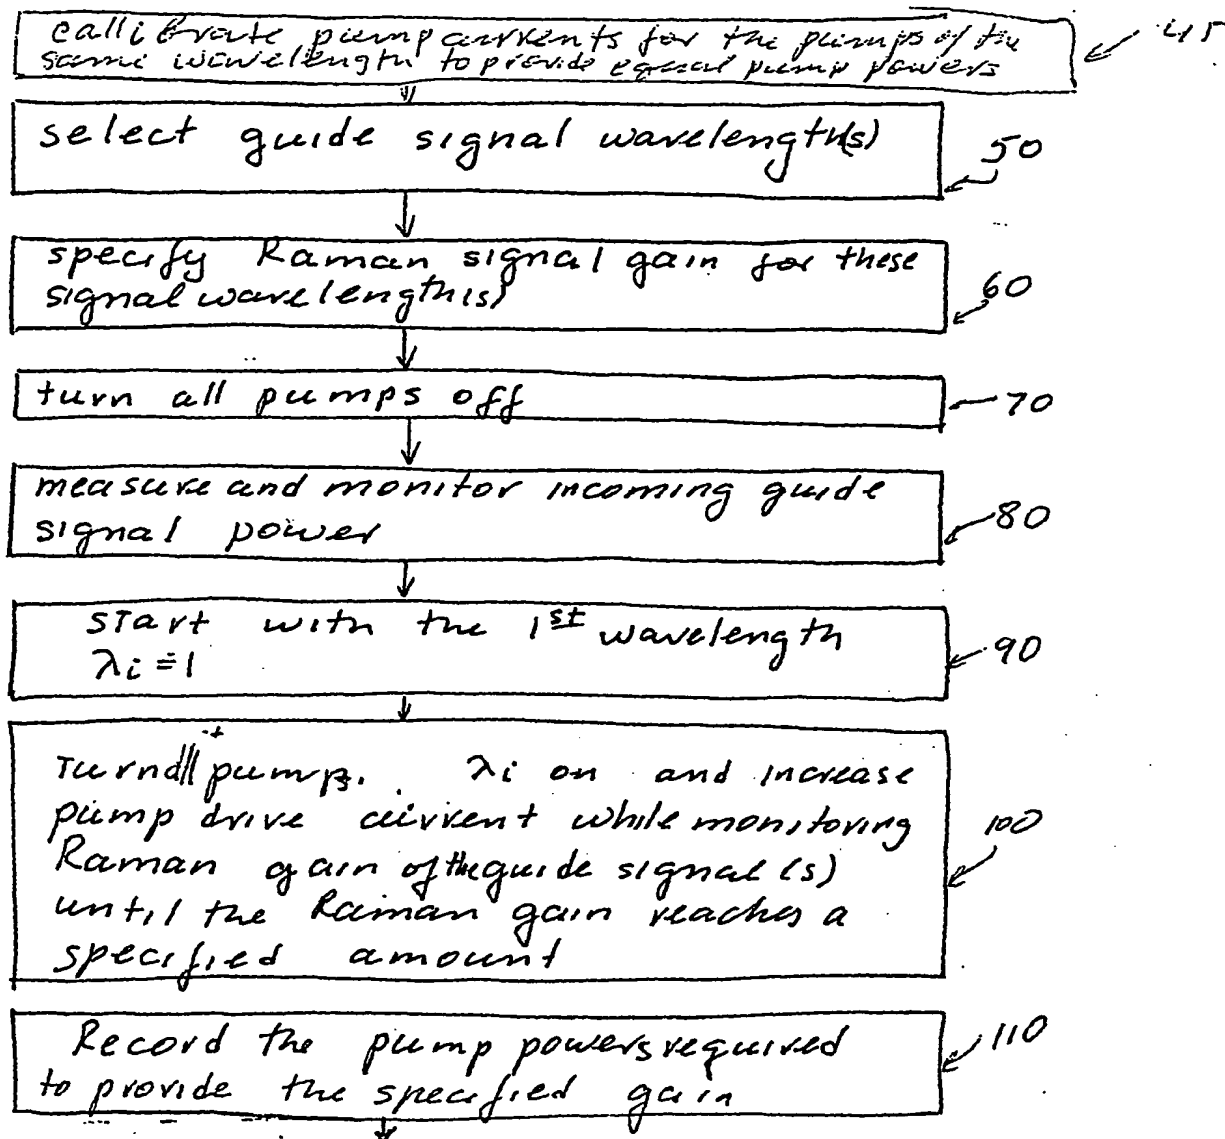 callibrate pump currents for the pumps of the
same wavelength to provide equal pump powers
45
select guide signal wavelength(s)
50
specify Raman signal gain for these
signal wavelength(s)
60
turn all pumps off
70
measure and monitor incoming guide
signal power
80
start with the 1st wavelength
λi=1
90
Turn all pumps. λi on and increase
pump drive current while monitoring
Raman gain of the guide signal (s)
until the Raman gain reaches a
specified amount
100
Record the pump powers required
to provide the specified gain
110